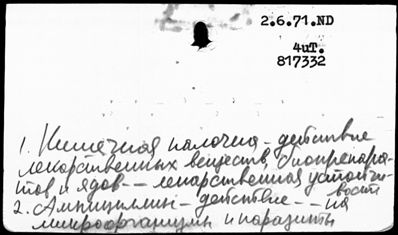 2.6.71.ND
4чт.
817332
1. Кишечная палочка - действие
лекарственных веществ, биопрепара-
тов и ядов -- лекарственная устойчи-
вость
2. Ампициллины - действие -- на
микроорганизмы и паразиты